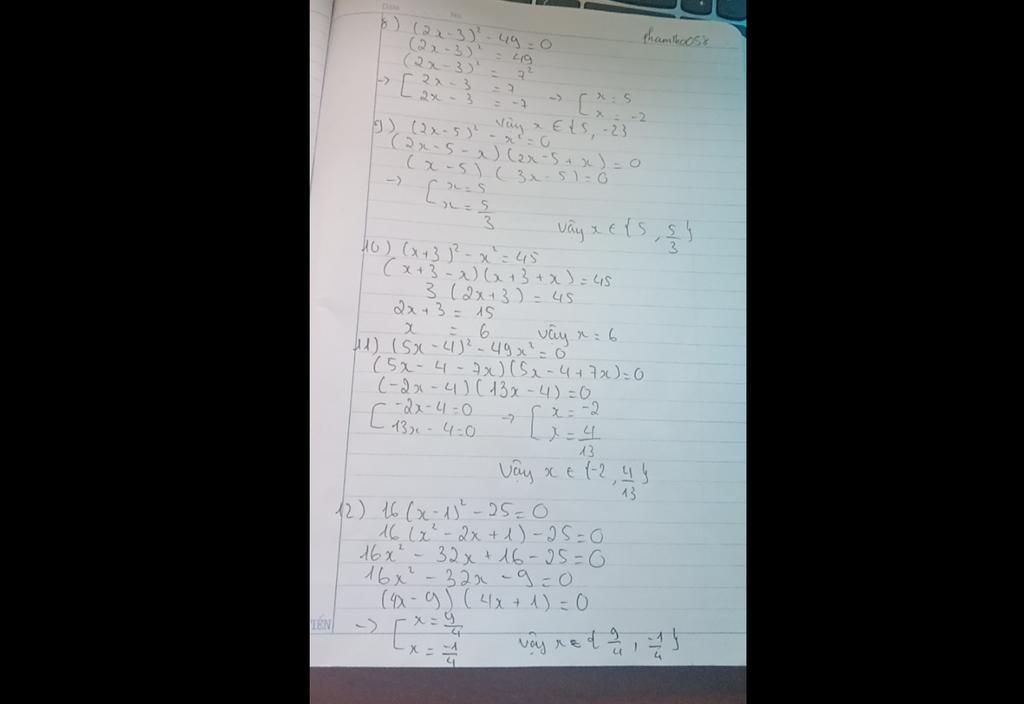 Date No
phamtho058
8) (2x-3)² - 49 = 0
(2x-3)² = 49
(2x-3)² = 7²
→ [ 2x - 3 = 7 → [ x = 5
2x - 3 = -7 x = -2
Vậy x ∈ {5, -2}
9) (2x-5)² - x² = 0
(2x - 5 - x)(2x - 5 + x) = 0
(x - 5)(3x - 5) = 0
→ [ x = 5
x = 5/3 Vậy x ∈ {5, 5/3}
10) (x+3)² - x² = 45
(x+3 - x)(x+3 + x) = 45
3 (2x+3) = 45
2x + 3 = 15
x = 6 Vậy x = 6
11) (5x - 4)² - 49x² = 0
(5x - 4 - 7x)(5x - 4 + 7x) = 0
(-2x - 4)(13x - 4) = 0
[ -2x - 4 = 0 → [ x = -2
13x - 4 = 0 x = 4/13
Vậy x ∈ {-2, 4/13}
12) 16(x-1)² - 25 = 0
16(x² - 2x + 1) - 25 = 0
16x² - 32x + 16 - 25 = 0
16x² - 32x - 9 = 0
(4x - 9)(4x + 1) = 0
→ [ x = 9/4
x = -1/4 Vậy x ∈ {9/4, -1/4}
TẾN